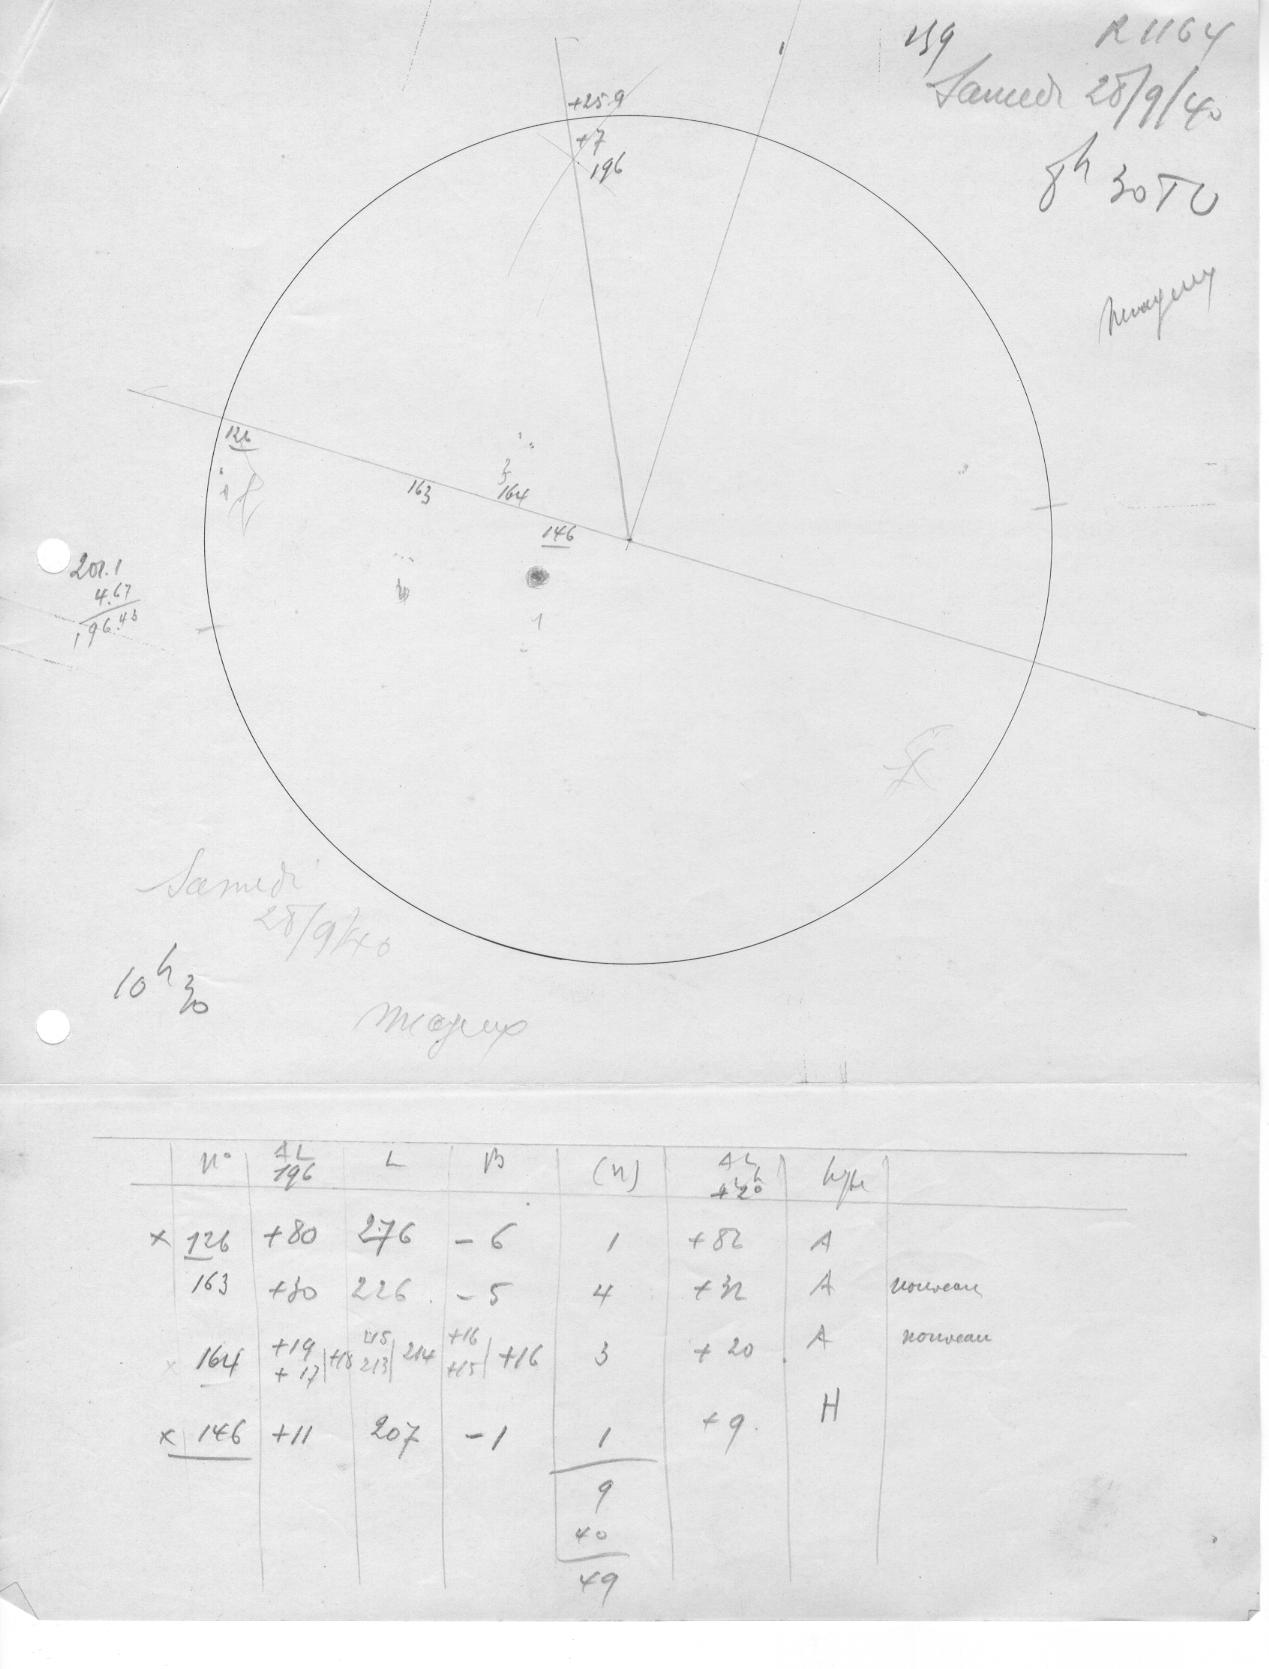 159 R1164
Samedi 28/9/40
8h 30 TU
nuageux
+25.9
+7
196
126
163
164
146
1
201.1
4.67
196.43
Samedi
28/9/40
10h 30
nuageux
N° ΔL 196 L B (n) ΔL type
× 126 +80 276 -6 1 +82 A
163 +30 226 -5 4 +32 A nouveau
× 164 +19 +17 | +18 215 213 | 214 +16 +15 | +16 3 +20 A nouveau
× 146 +11 207 -1 1 +9 H
9
40
49